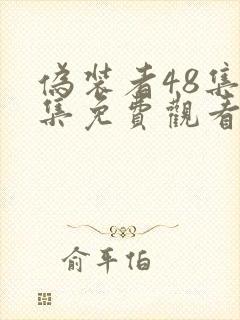 偽裝者48集
集免費觀看
俞平伯